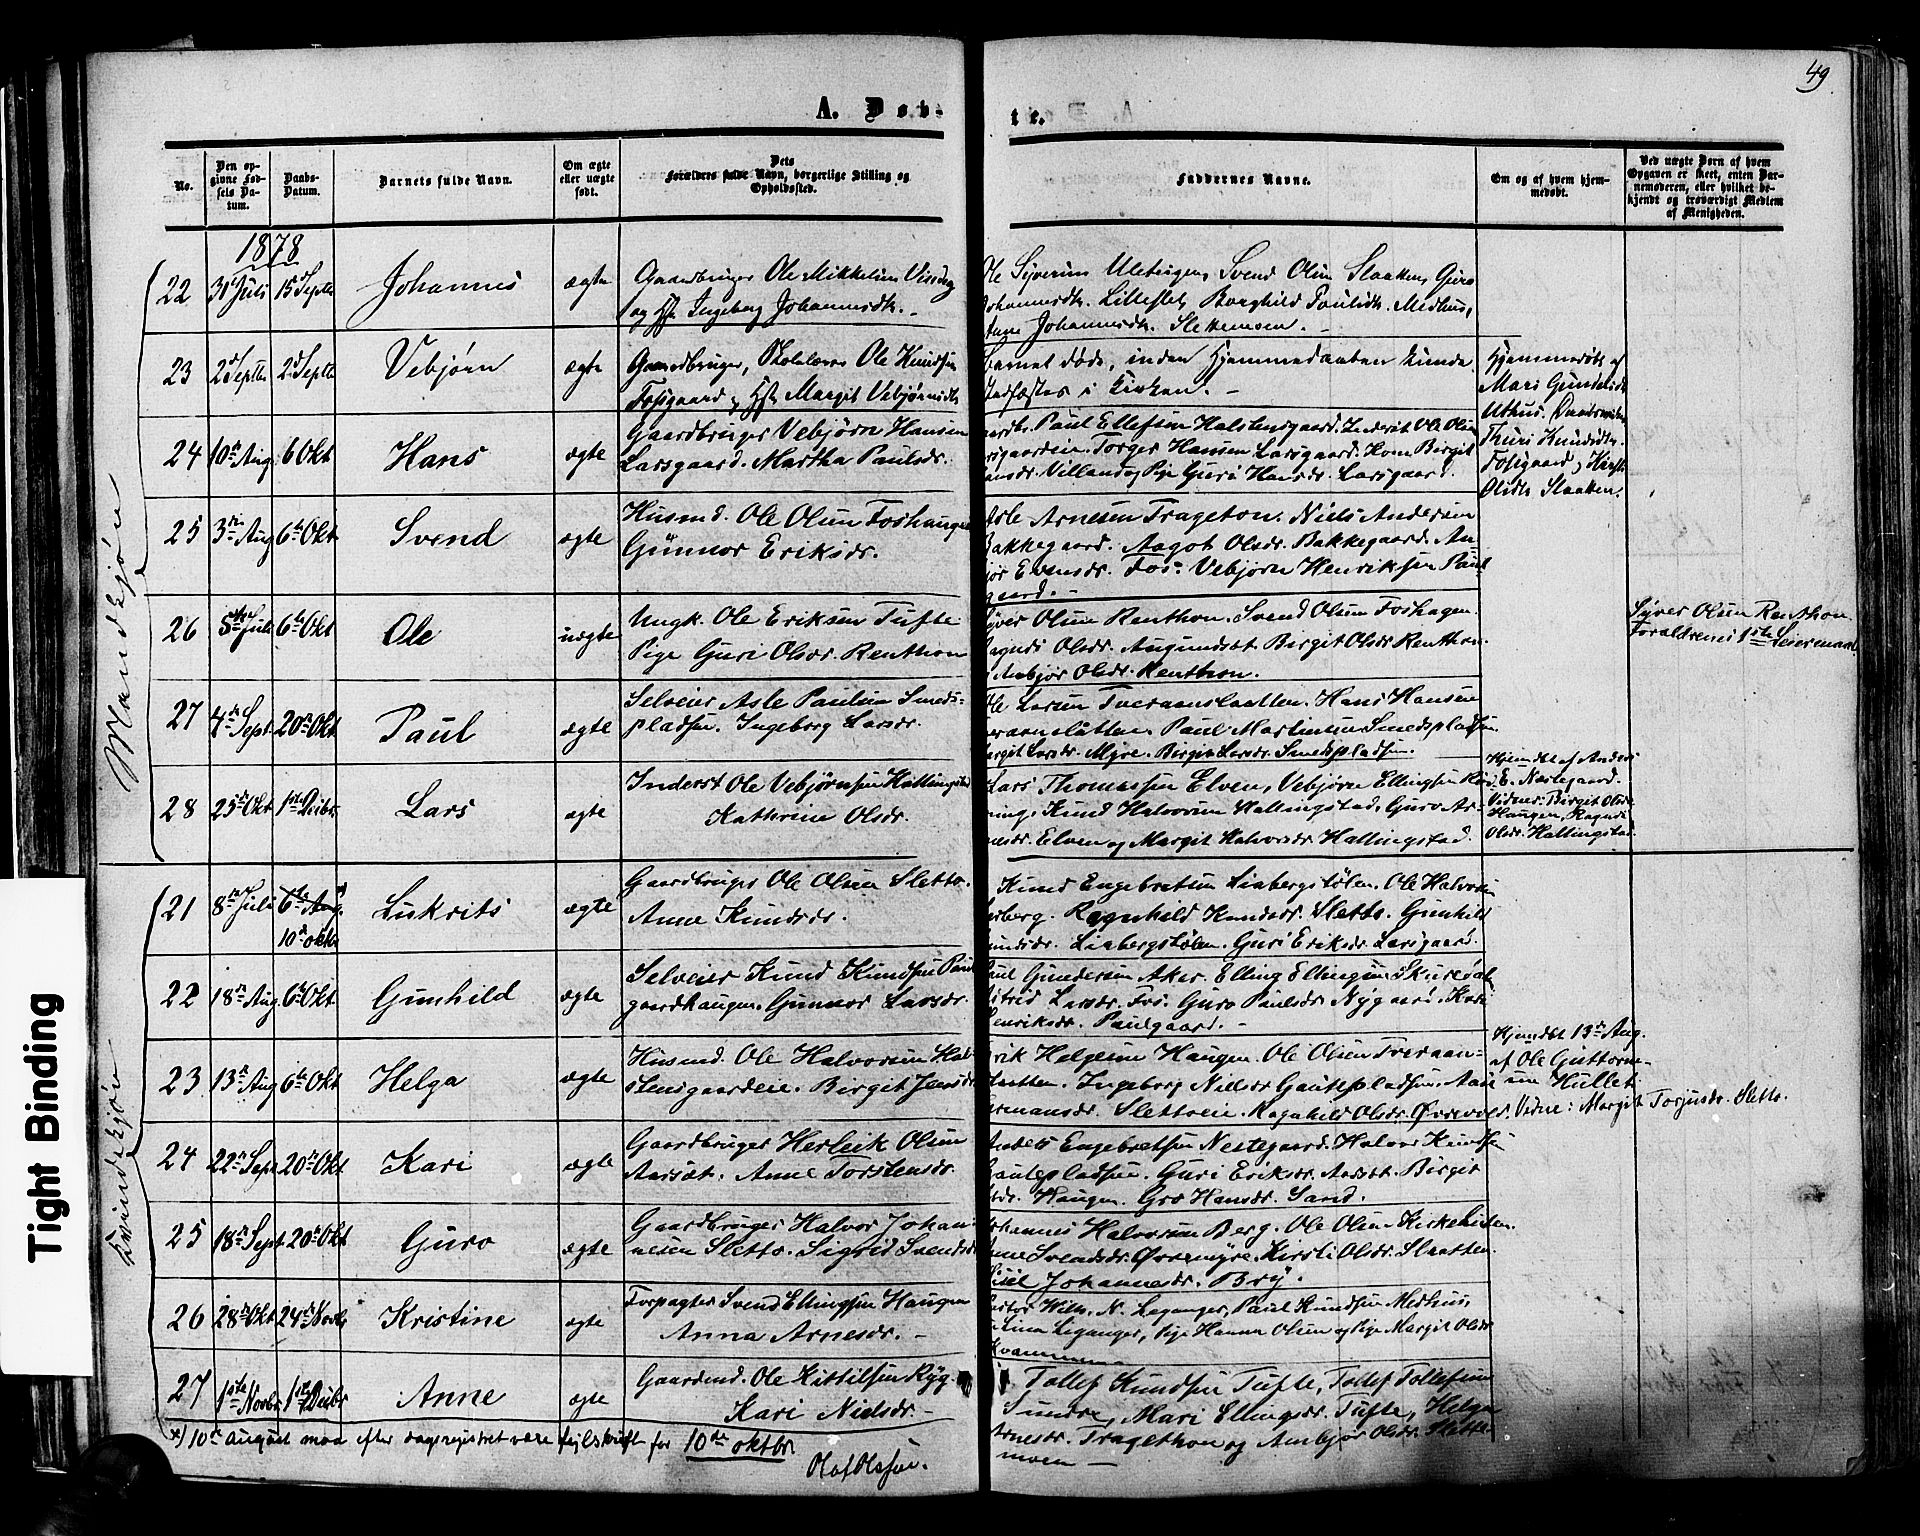 49
A. Døbte.
No.
Den opgivne Fødsels Datum.
Daabs-Datum.
Barnets fulde Navn.
Om ægte eller uægte født.
Dets Forældres fulde Navn, borgerlige Stilling og Opholdssted.
Faddernes Navne.
Om og af hvem hjemmedøbt.
Ved uægte Børn af hvem Opgaven er skeet, enten Barnemoderen, eller hvilket bekjendt og troværdigt Medlem af Menigheden.
1878
Mandkjøn
22 31 Juli 15 Septbr Johannes ægte
Gaardbruger Ole Mikkelsen
og Hst Ingeborg Johannesdtr. -
Ole Syversen Svend Olsen Slaatten, Guro
Johannesdtr. Lilleslet, Borghild Paulsdtr. Medhus,
Anne Johannesdtr. Slettemoen. -
23 2d Septbr 2d Septbr Vebjørn ægte
Gaardbruger, Skolelærer Ole Knudsen
Fosgaard og Hst Margit Vebjørnsdtr
Barnet døde, inden Hjemmedaaben kunde
stadfæstes i Kirken. -
Hjemmedøbt af
Mari Gundersdtr
Uthus. Daabsvidner
Thuri Knudsdtr.
Fosgaard og
Olsdtr Slaatten.
24 10de Aug 6 Okt Hans ægte
Gaardbruger Vebjørn Hansen
Larsgaard. Martha Paulsdr.
Paul Ellefsen Halstensgaard. Inderst Ole Olsen
Torger Hansen Larsgaard. Kone Birgit
Villand og Pige Guri Hansdr. Larsgaard.
25 3die Aug 6te Okt Svend ægte
Husmd. Ole Olsen Foshaugen
Gunnor Eriksdr.
Asle Arnesen Trageton. Niels Andersen
Bakkegaard. Aagot Olsdr. Bakkegaard. An-
bjør Evensdr. Fos. Vebjørn Henriksen Paul-
gaard. -
26 5te Juli 6te Okt Ole uægte
Ungk. Ole Eriksen Tufte
Pige Guri Olsdr. Renthon
Syver Olsen Renthon. Svend Olsen Foshagen.
Ragndi Olsdr. Augundsæt. Birgit Olsdr Renthon.
Anbjør Olsdr. Renthon.
Syver Olsen Renthon.
Forældrenes 1ste Leiermaal.
27 4de Sept. 20de Okt Paul ægte
Selveier Asle Paulsen Smeds-
pladsen. Ingeborg Larsdr.
Ole Larsen Tveraanslaatten. Hans Hansen
Tveraanslaatten. Paul Martinsen Smedspladsen.
Birgit Larsdr. Myre. Birgit Larsdr. Smedspladsen.
28 25de Okt 1ste Decbr. Lars ægte
Inderst Ole Vebjørnsen Hallingstad
Kathrine Olsdr.
Lars Thomassen Elven, Vebjørn Ellingsen
Knud Halvorsen Hallingstad, Guro Ar-
nesdr. Elven og Margit Halvorsdr Hallingstad.
Hjemdøbt af Anders
E. Nestegaard.
Vidner: Birgit Olsdr
Haugen, Ragndi
Olsdr. Hallingstad.
Kvindekjøn
21 8de Juli 6te Aug. *) Lukrits ægte
10de oktbr
Gaardbruger Ole Olsen Sletto.
Anne Knudsdr.
Knud Engebretsen Liabergstølen. Ole Halvorsen
Ragnhild Knudsdr. Sletto. Gunhild
Knudsdr. Liabergstølen. Guri Eriksdr. Larsgaard.
22 18de Aug 6te Okt. Gunhild ægte
Selveier Knud Knudsen Paul-
gaardhaugen. Gunnor Larsdr.
Paul Gundersen Aker. Elling Ellingsen Skuredal.
Astrid Larsdr. Fos. Guro Paulsdr. Nygaard. Kari
Henriksdr. Paulgaard. -
23 13de Aug 6te Okt Helga ægte
Husmd. Ole Halvorsen Hal-
stensgaardeie. Birgit Jensdr
Erik Helgesen Haugen. Ole Olsen Tveraan-
slaatten. Ingeborg Nielsdr Gautepladsen. Aase
Hermansdr. Slettoeie. Ragnhild Olsdr. Øvrevold.
Hjemdøbt 13de Aug.
af Ole Guttorm-
sen Hullet.
Vidne: Margit Torjusdr. Sletto.
24 22de Sept 20de Okt Kari ægte
Gaardbruger Herleik Olsen
Aarsæt. Anne Torstensdr.
Anders Engebretsen Nestegaard. Halvor Knudsen
Gautepladsen. Guri Eriksdr. Aarsæt. Birgit
Olsdr. Haugen. Gro Hansdr. Sand.
25 18de Sept 20de Okt Guro ægte
Gaardbruger Halvor Johan-
nesen Sletto. Sigrid Svendsdr
Johannes Halvorsen Berg. Ole Olsen
Anne Svendsdr. Øvremyre. Kirsti Olsdr. Slaatten.
Johannesdr. Bry.
26 28de Okt 24de Novbr Kristine ægte
Forpagter Svend Ellingsen Haugen
Anna Arnesdr. -
Pastor Wilh. N. Leganger, Paul Knudsen Medhus,
Lina Leganger, Pige Hanna Olsen og Pige Margit Olsdr
27 1ste Novbr. 1ste Decbr Anne ægte
Gaardmd. Ole Kittilsen Ryg.
Kari Nielsdr. -
Tollef Knudsen Tufte, Tollef Tollefsen
Sundre, Mari Ellingsdr. Tufte, Helga
Arnesdr. Tragethon og Anbjør Olsdr. Slette-
moen -
*) 10de august maa efter dagsregistret være feilskrift for 10de oktbr.
Olaf Olafsen.
Tight Binding